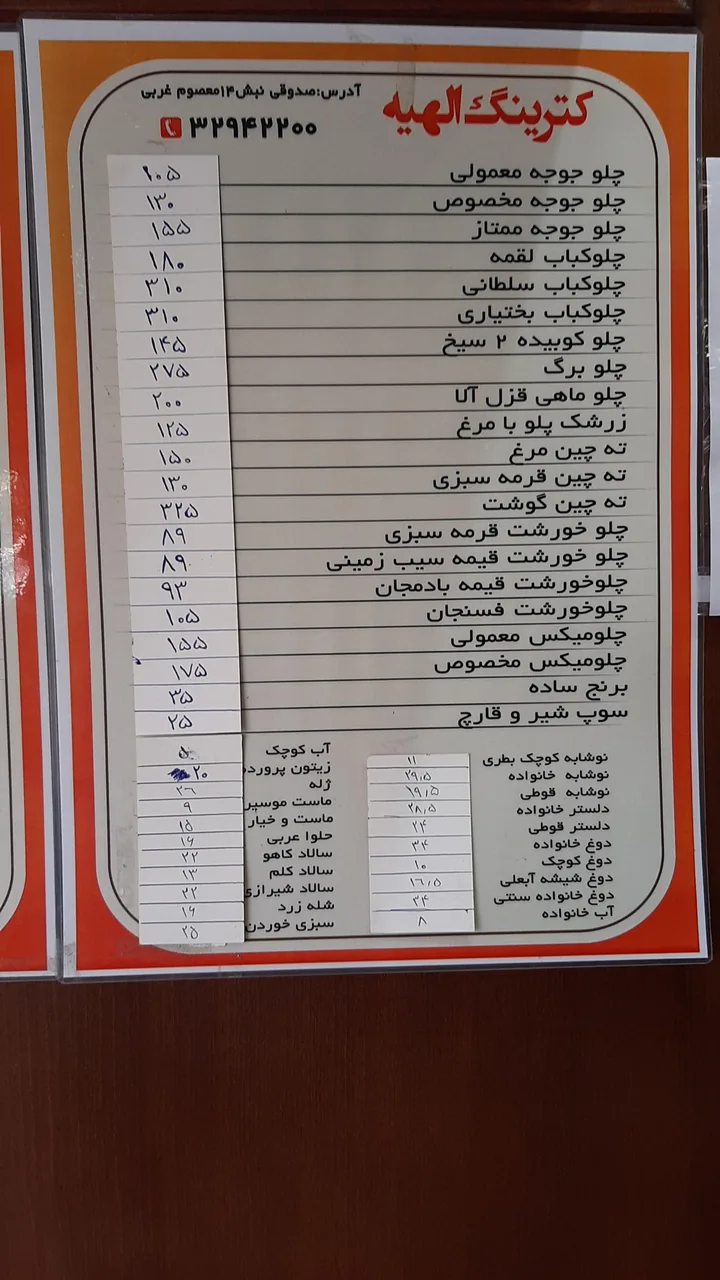 کترینگ الهیه
آدرس:صدوقی نبش۱۴معصوم غربی
۳۲۹۴۲۲۰۰
چلو جوجه معمولی ۱۰۵
چلو جوجه مخصوص ۱۳۰
چلو جوجه ممتاز ۱۵۵
چلوکباب لقمه ۱۸۰
چلوکباب سلطانی ۳۱۰
چلوکباب بختیاری ۳۱۰
چلو کوبیده ۲ سیخ ۱۴۵
چلو برگ ۲۷۵
چلو ماهی قزل آلا ۲۰۰
زرشک پلو با مرغ ۱۲۵
ته چین مرغ ۱۵۰
ته چین قرمه سبزی ۱۳۰
ته چین گوشت ۳۲۵
چلو خورشت قرمه سبزی ۸۹
چلو خورشت قیمه سیب زمینی ۸۹
چلوخورشت قیمه بادمجان ۹۳
چلوخورشت فسنجان ۱۰۵
چلومیکس معمولی ۱۵۵
چلومیکس مخصوص ۱۷۵
برنج ساده ۳۵
سوپ شیر و قارچ ۲۵
نوشابه کوچک بطری ۱۱
نوشابه خانواده ۲۹,۵
نوشابه قوطی ۱۹,۵
دلستر خانواده ۲۸,۵
دلستر قوطی ۲۴
دوغ خانواده ۳۴
دوغ کوچک ۱۰
دوغ شیشه آبعلی ۱۶,۵
دوغ خانواده سنتی ۳۴
آب خانواده ۸
آب کوچک ۵
زیتون پرورده ۲۰
ژله ۲۶
ماست موسیر ۹
ماست و خیار ۱۵
حلوا عربی ۱۶
سالاد کاهو ۲۲
سالاد کلم ۱۳
سالاد شیرازی ۲۲
شله زرد ۱۶
سبزی خوردن ۲۵